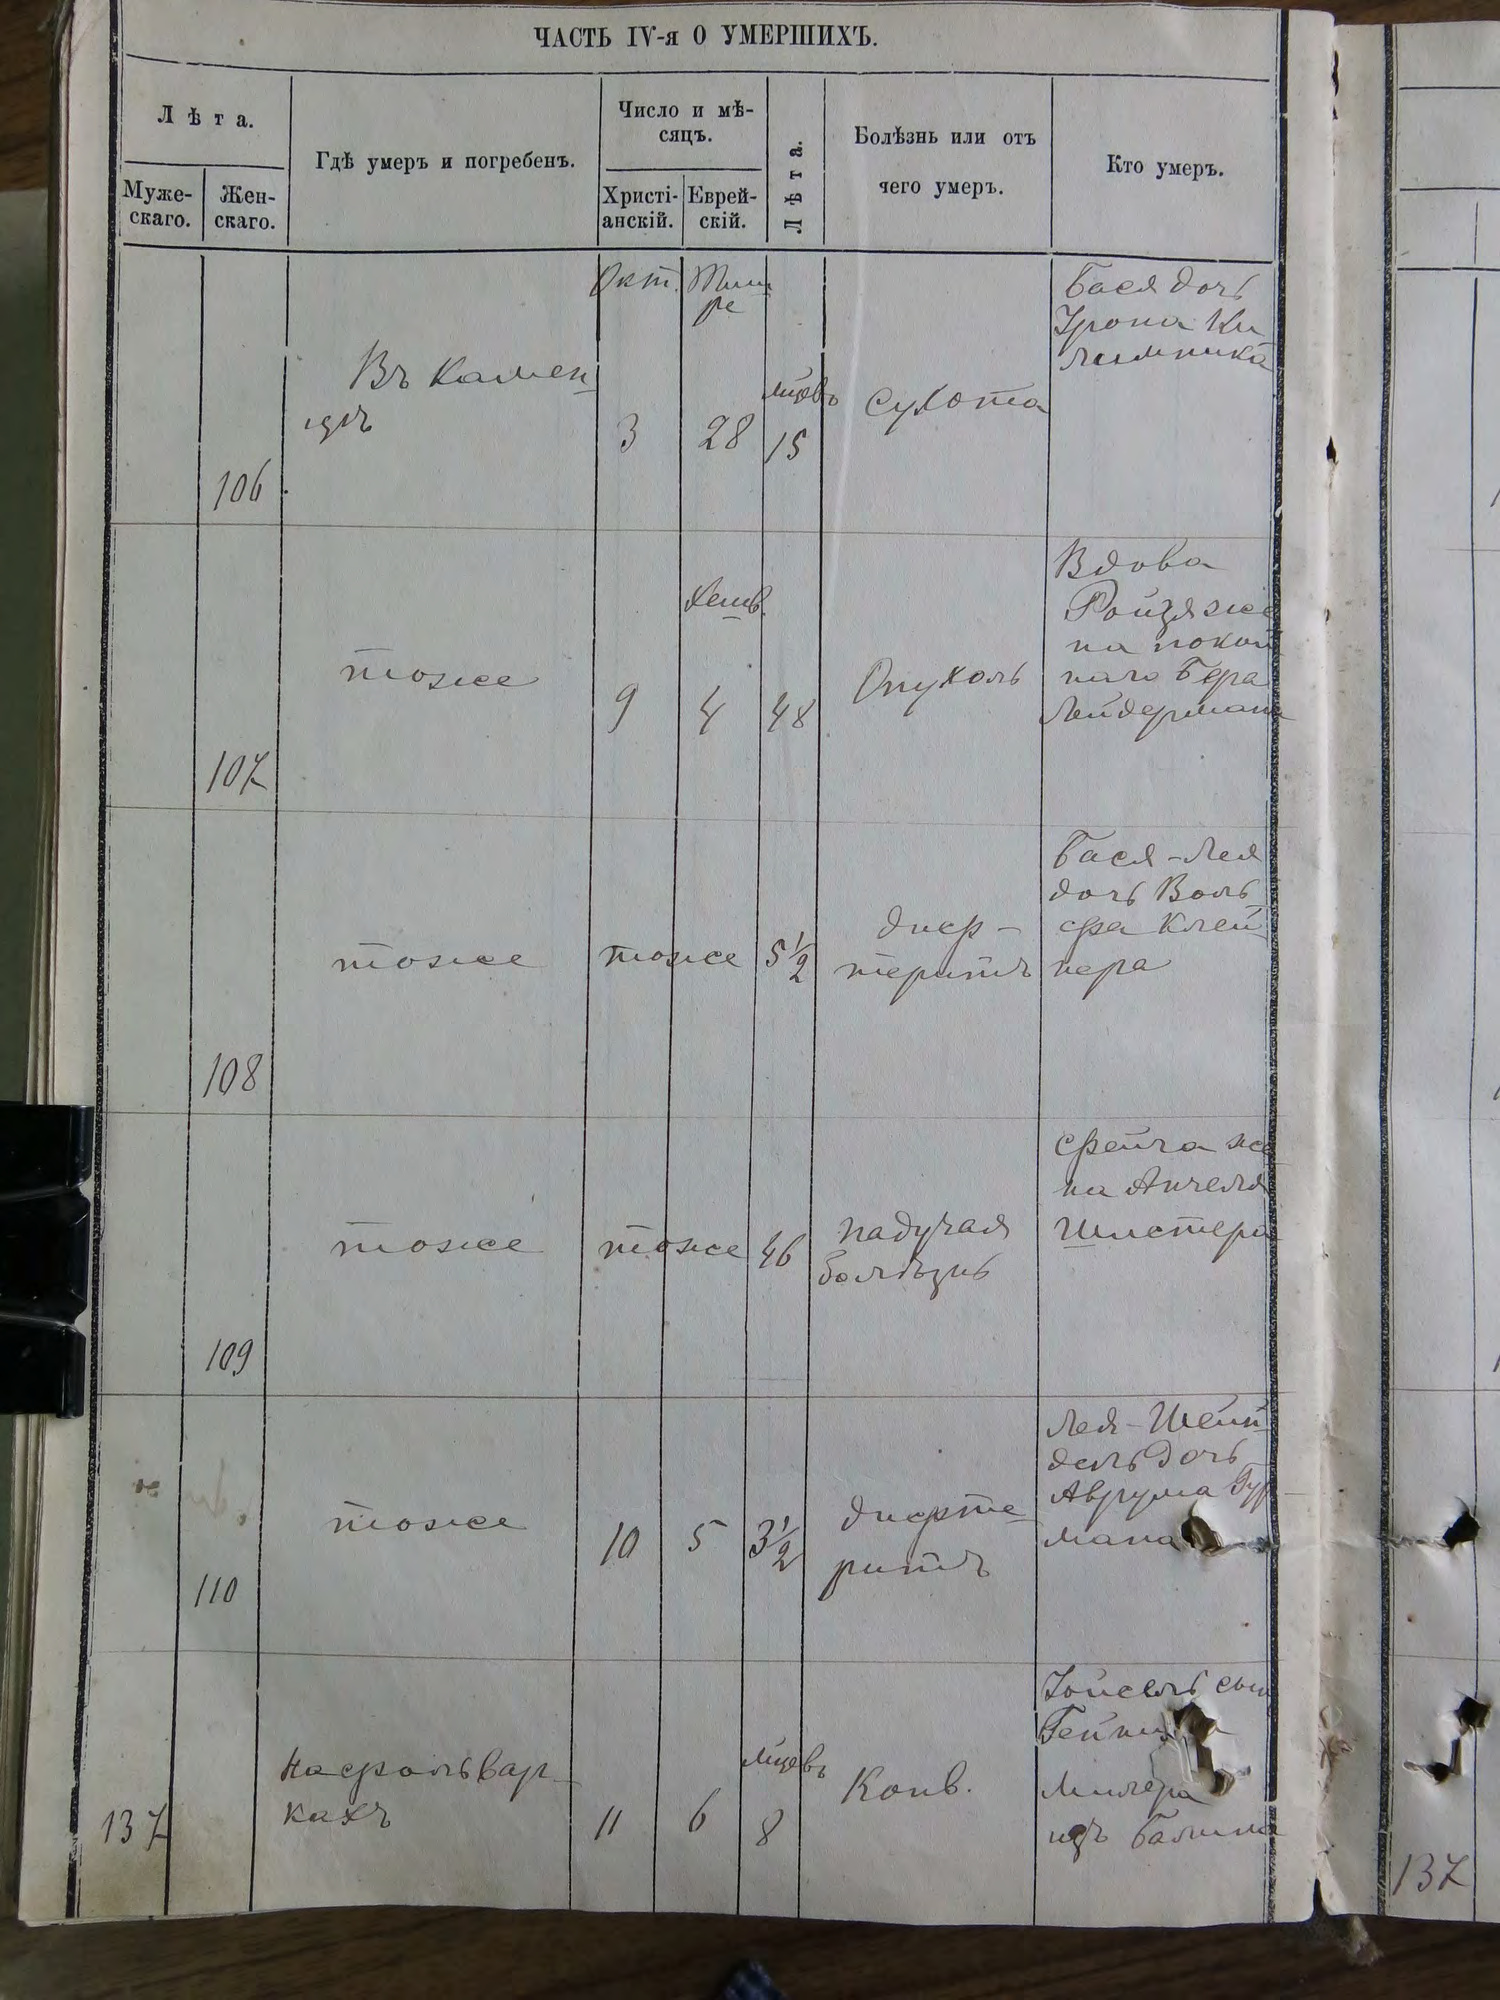 ЧАСТЬ IV-я О УМЕРШИХЪ.
Лѣта.
Муже-
скаго.
Жен-
скаго.
Гдѣ умеръ и погребенъ.
Число и мѣ-
сяцъ.
Христі-
анскій.
Еврей-
скій.
Лѣта.
Болѣзнь или отъ
чего умеръ.
Кто умеръ.
106
Въ Камен
цѣ
Окт.
3
Тиш
ре
28
мцевъ
15
Сухота
Бася дочь
Срона Ки
лимника
107
тоже
9
Хешв.
4
48
Опухоль
Вдова
Ройзя же
на покой
наго Бера
Лейдермана
108
тоже
тоже
5 1/2
диф-
теритъ
Бася-Лея
дочь Воль
фа Клей
нера
109
тоже
тоже
46
падучая
болѣзнь
Фейга же
на Анчеля
Шистера
110
тоже
10
5
3 1/2
дифте
ритъ
Лея-Шейн
дель дочь
Аврума Гур
мана
137
На фольвар-
кахъ
11
6
мцевъ
8
Конв.
сын
Милера
изъ Балина
137